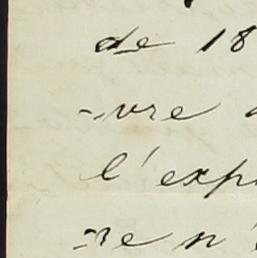 de 18
-vre
l'exp
-re n'